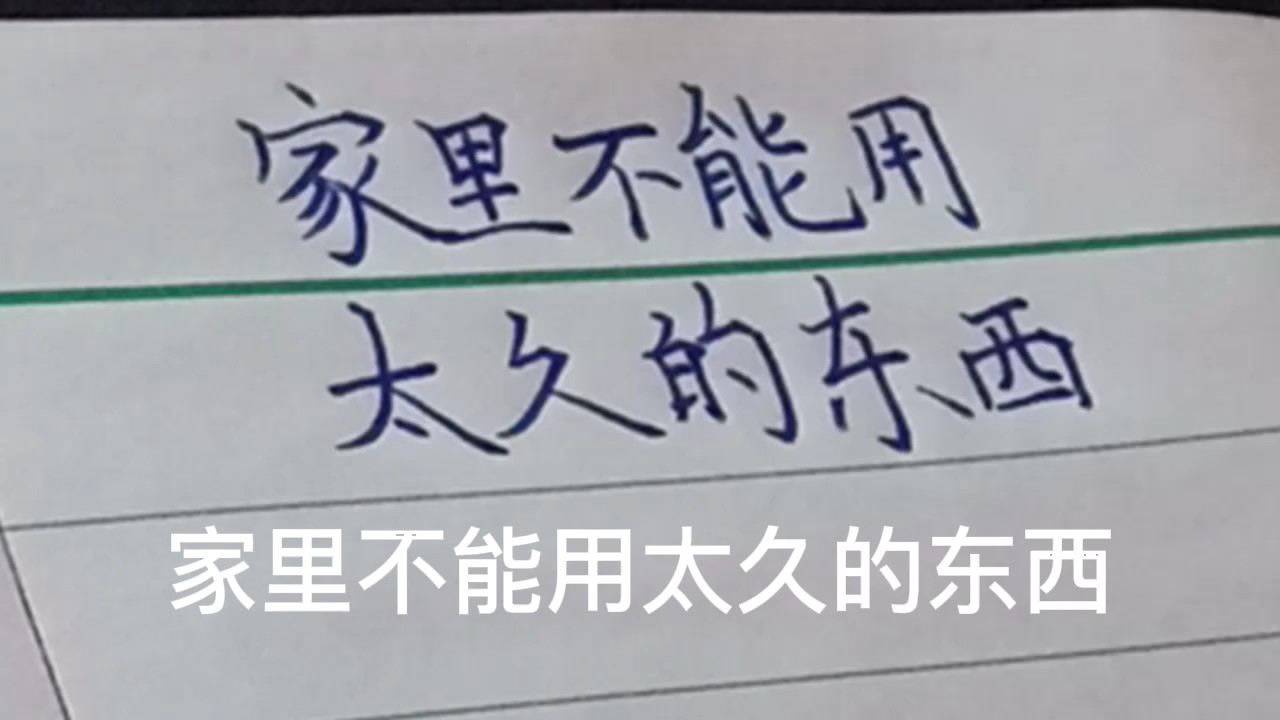 家里不能用
太久的东西
家里不能用太久的东西